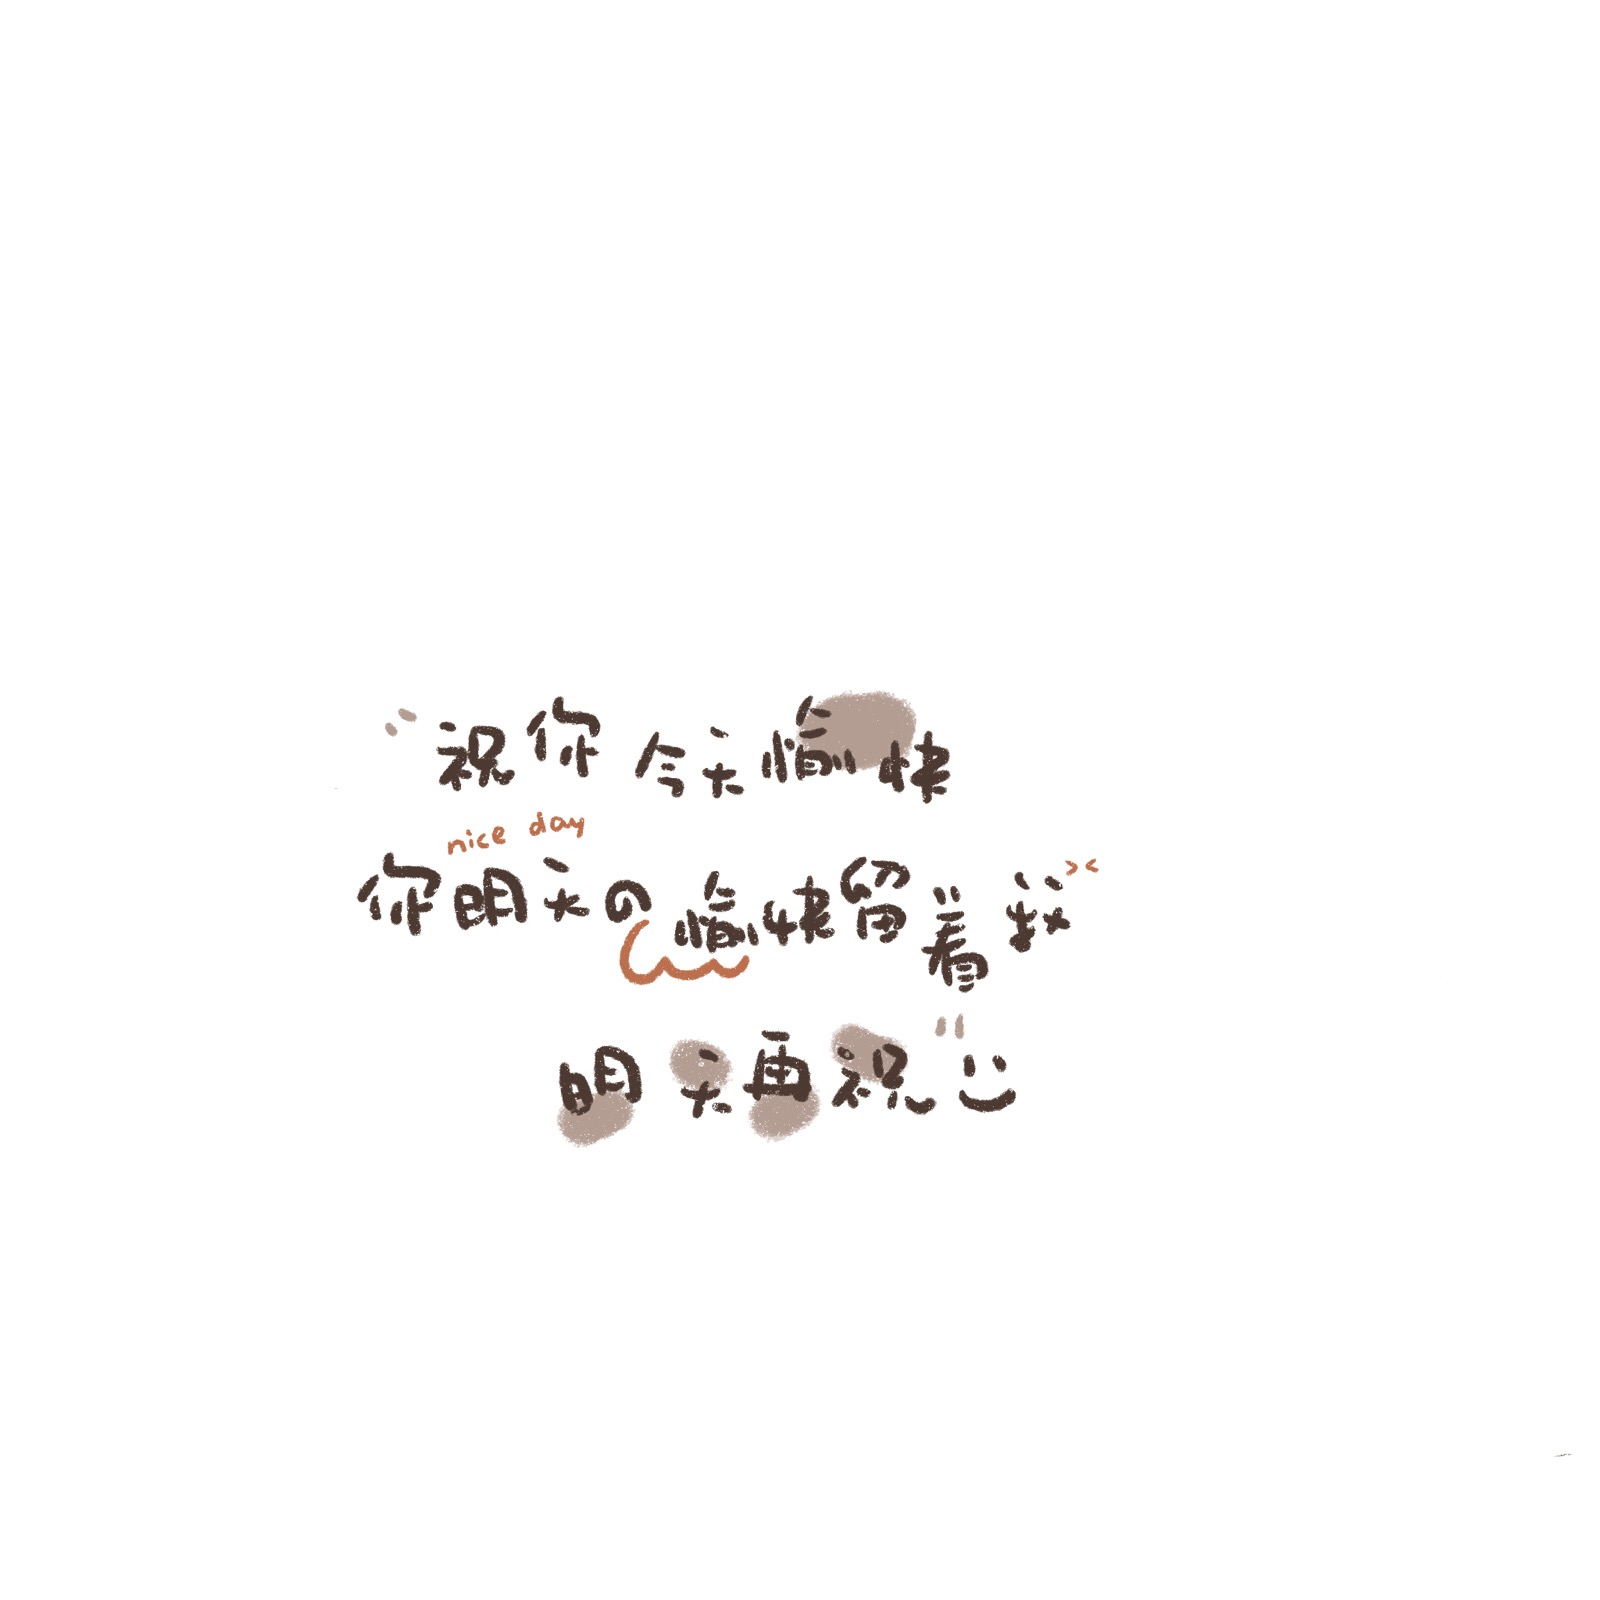 "祝你今天愉快
nice day
你明天の愉快留着我
明天再祝"